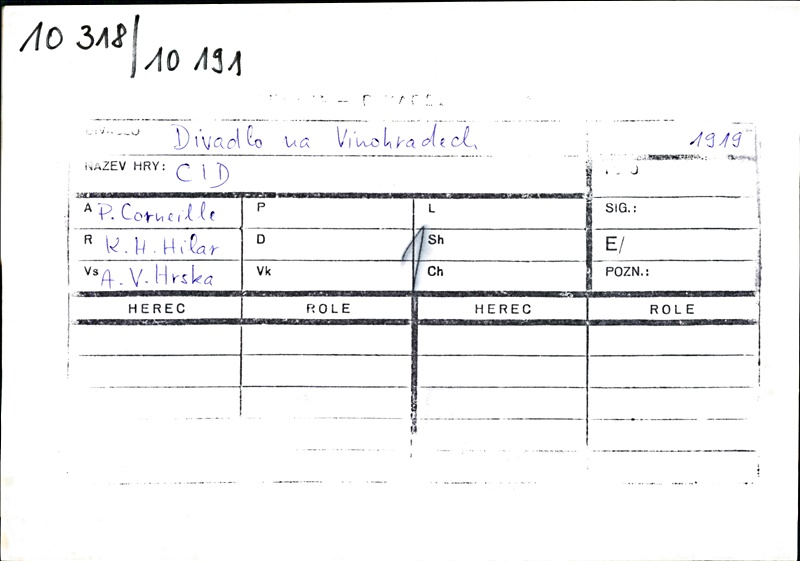 10 318/10 191
DIVADLO Divadlo na Vinohradech 1919
NÁZEV HRY: CID
A P. Corneille P L SIG.:
R K. H. Hilar D Sh E/
Vs A. V. Hrska Vk 1 Ch POZN.:
HEREC ROLE HEREC ROLE